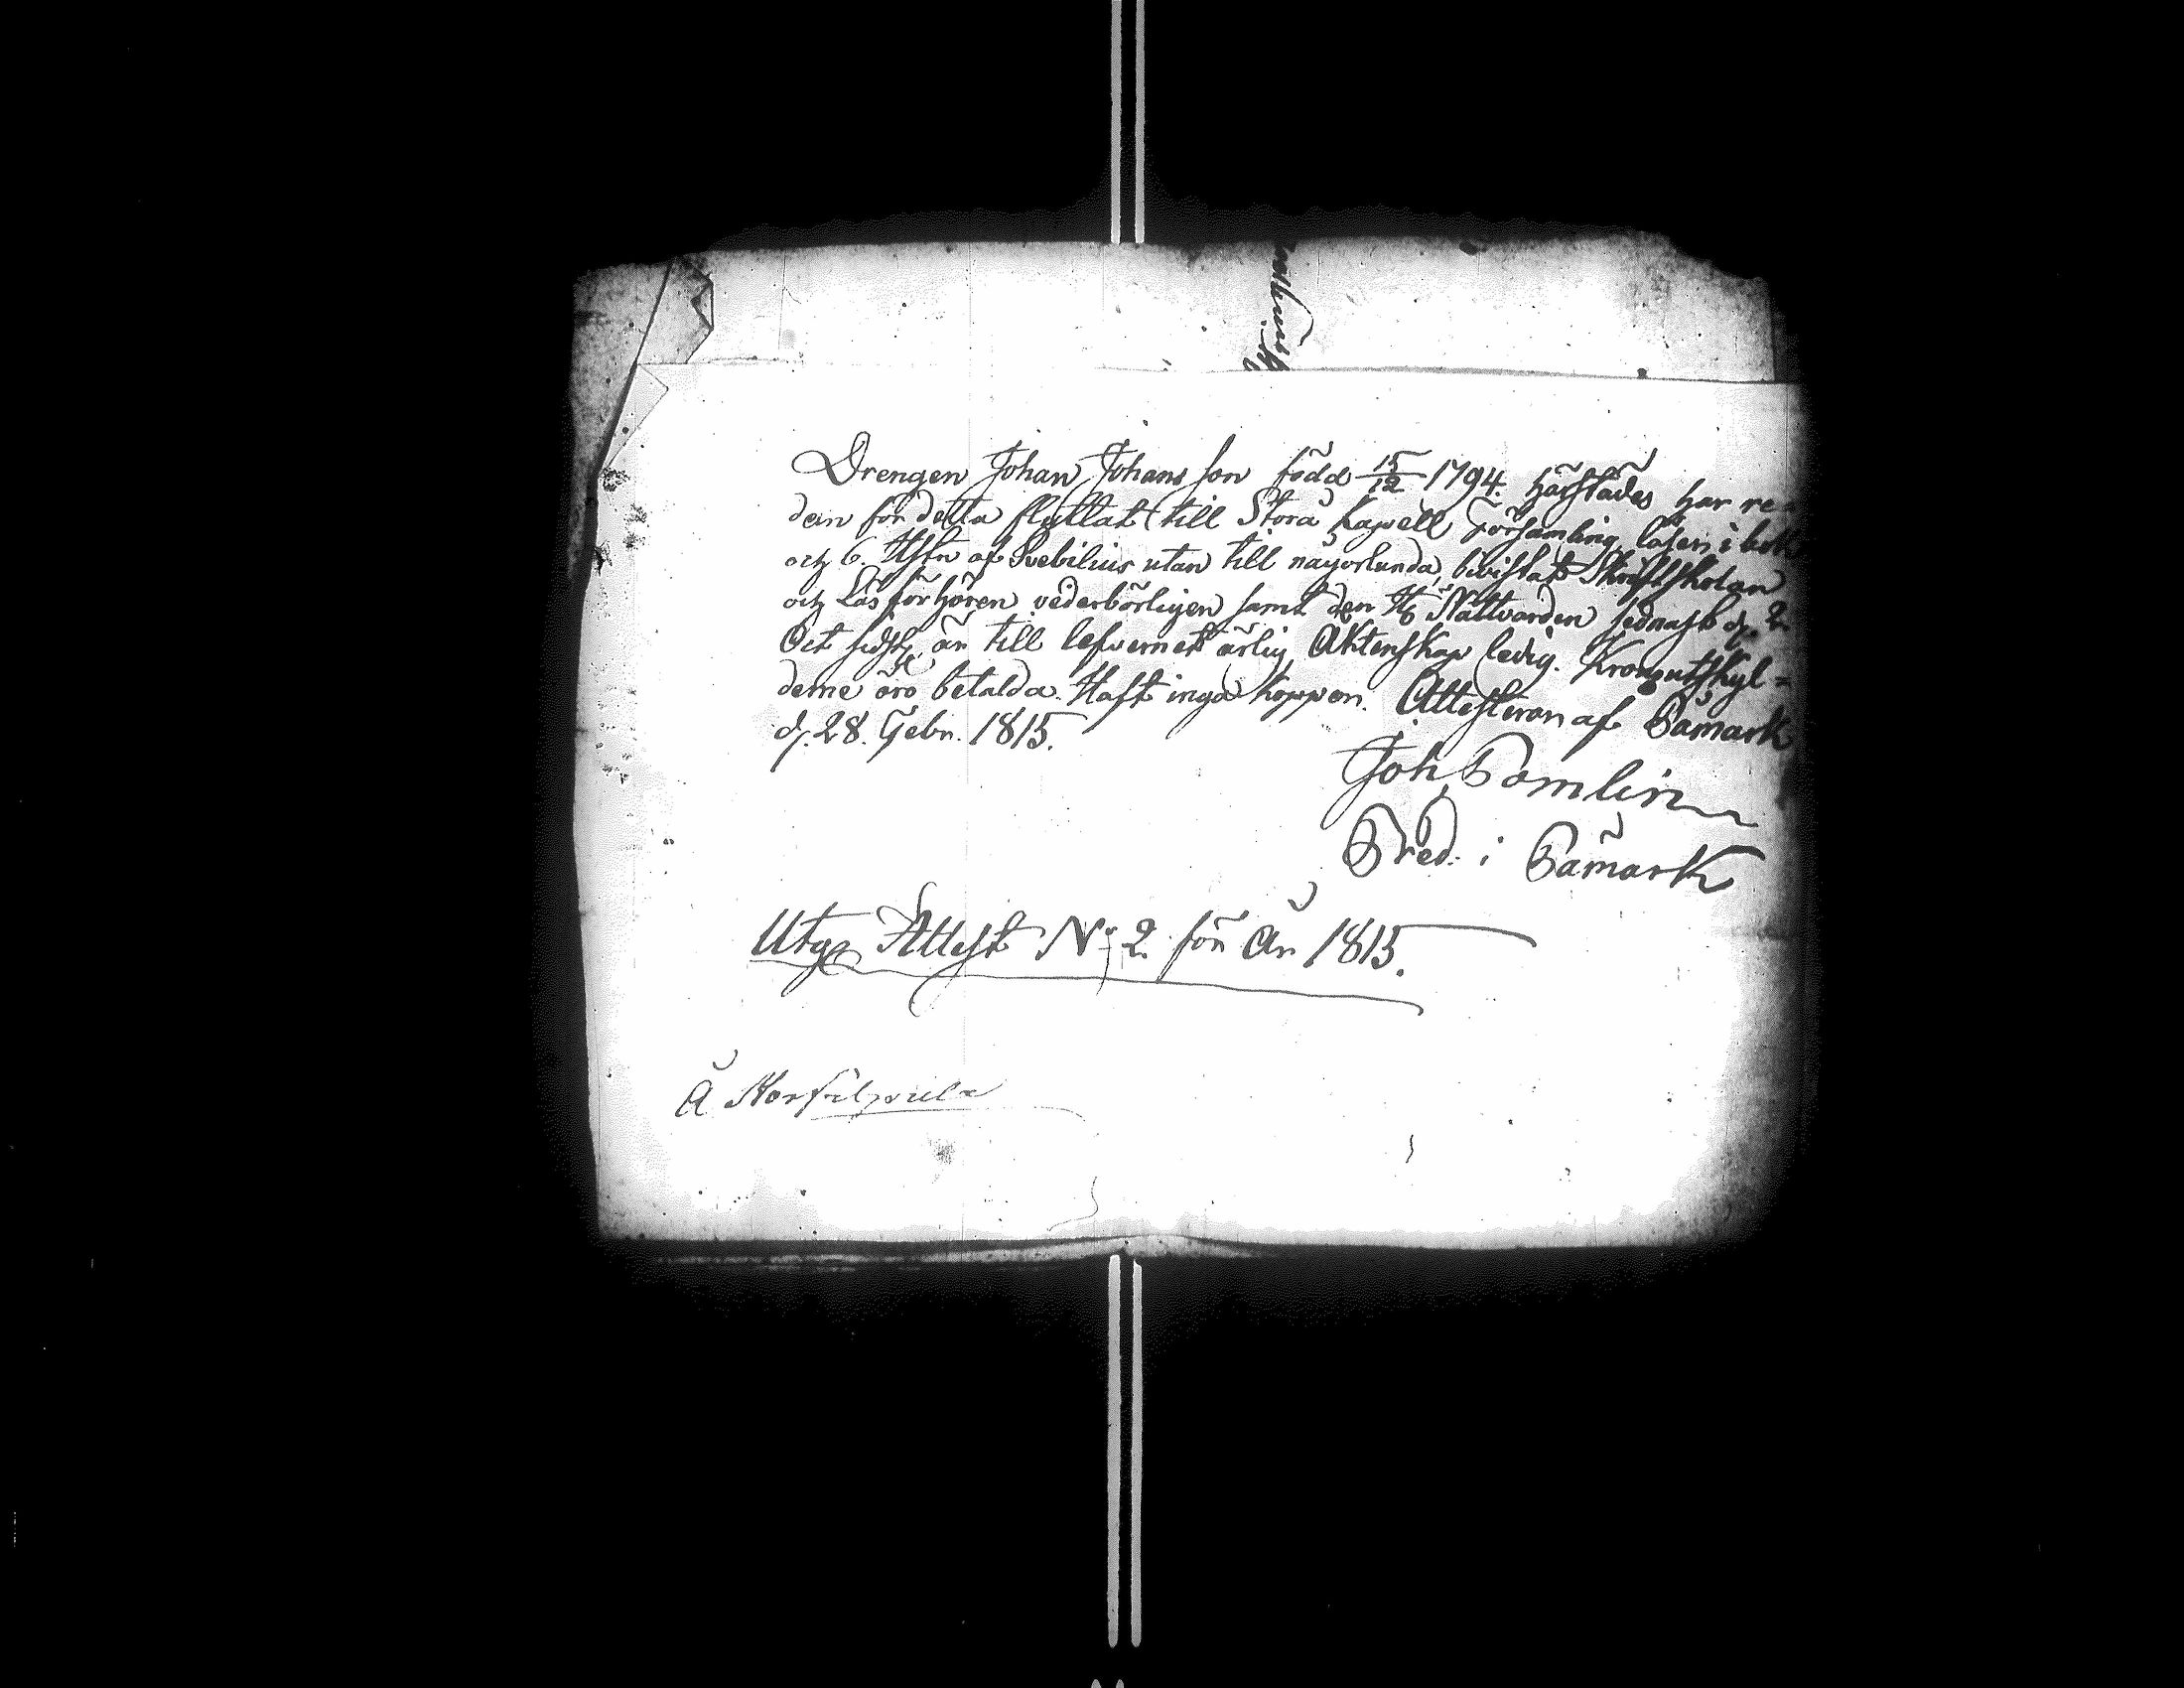 Drengen Johan Johansson född 15/12 1794. härstädes har re=
dan för detta flyttat till Storå Kapell Församling, läser i bok
och 6. Hstn af Svebilius utan till någorlunda, bivistat Skriftskolan
och Läsförhören vederbörligen samt den H. Nattvarden sednast d. 2
Oct sidstl, är till lefvernet ärlig, Äktenskap ledig. Kronoutskyl=
derne äro betalda. Haft inga Koppor. Attesteran af Påmark
d. 28. Febr. 1815.
Joh, Pomlin
Pred. i Påmark
Utg. Attest No 2 för År 1815.
Å